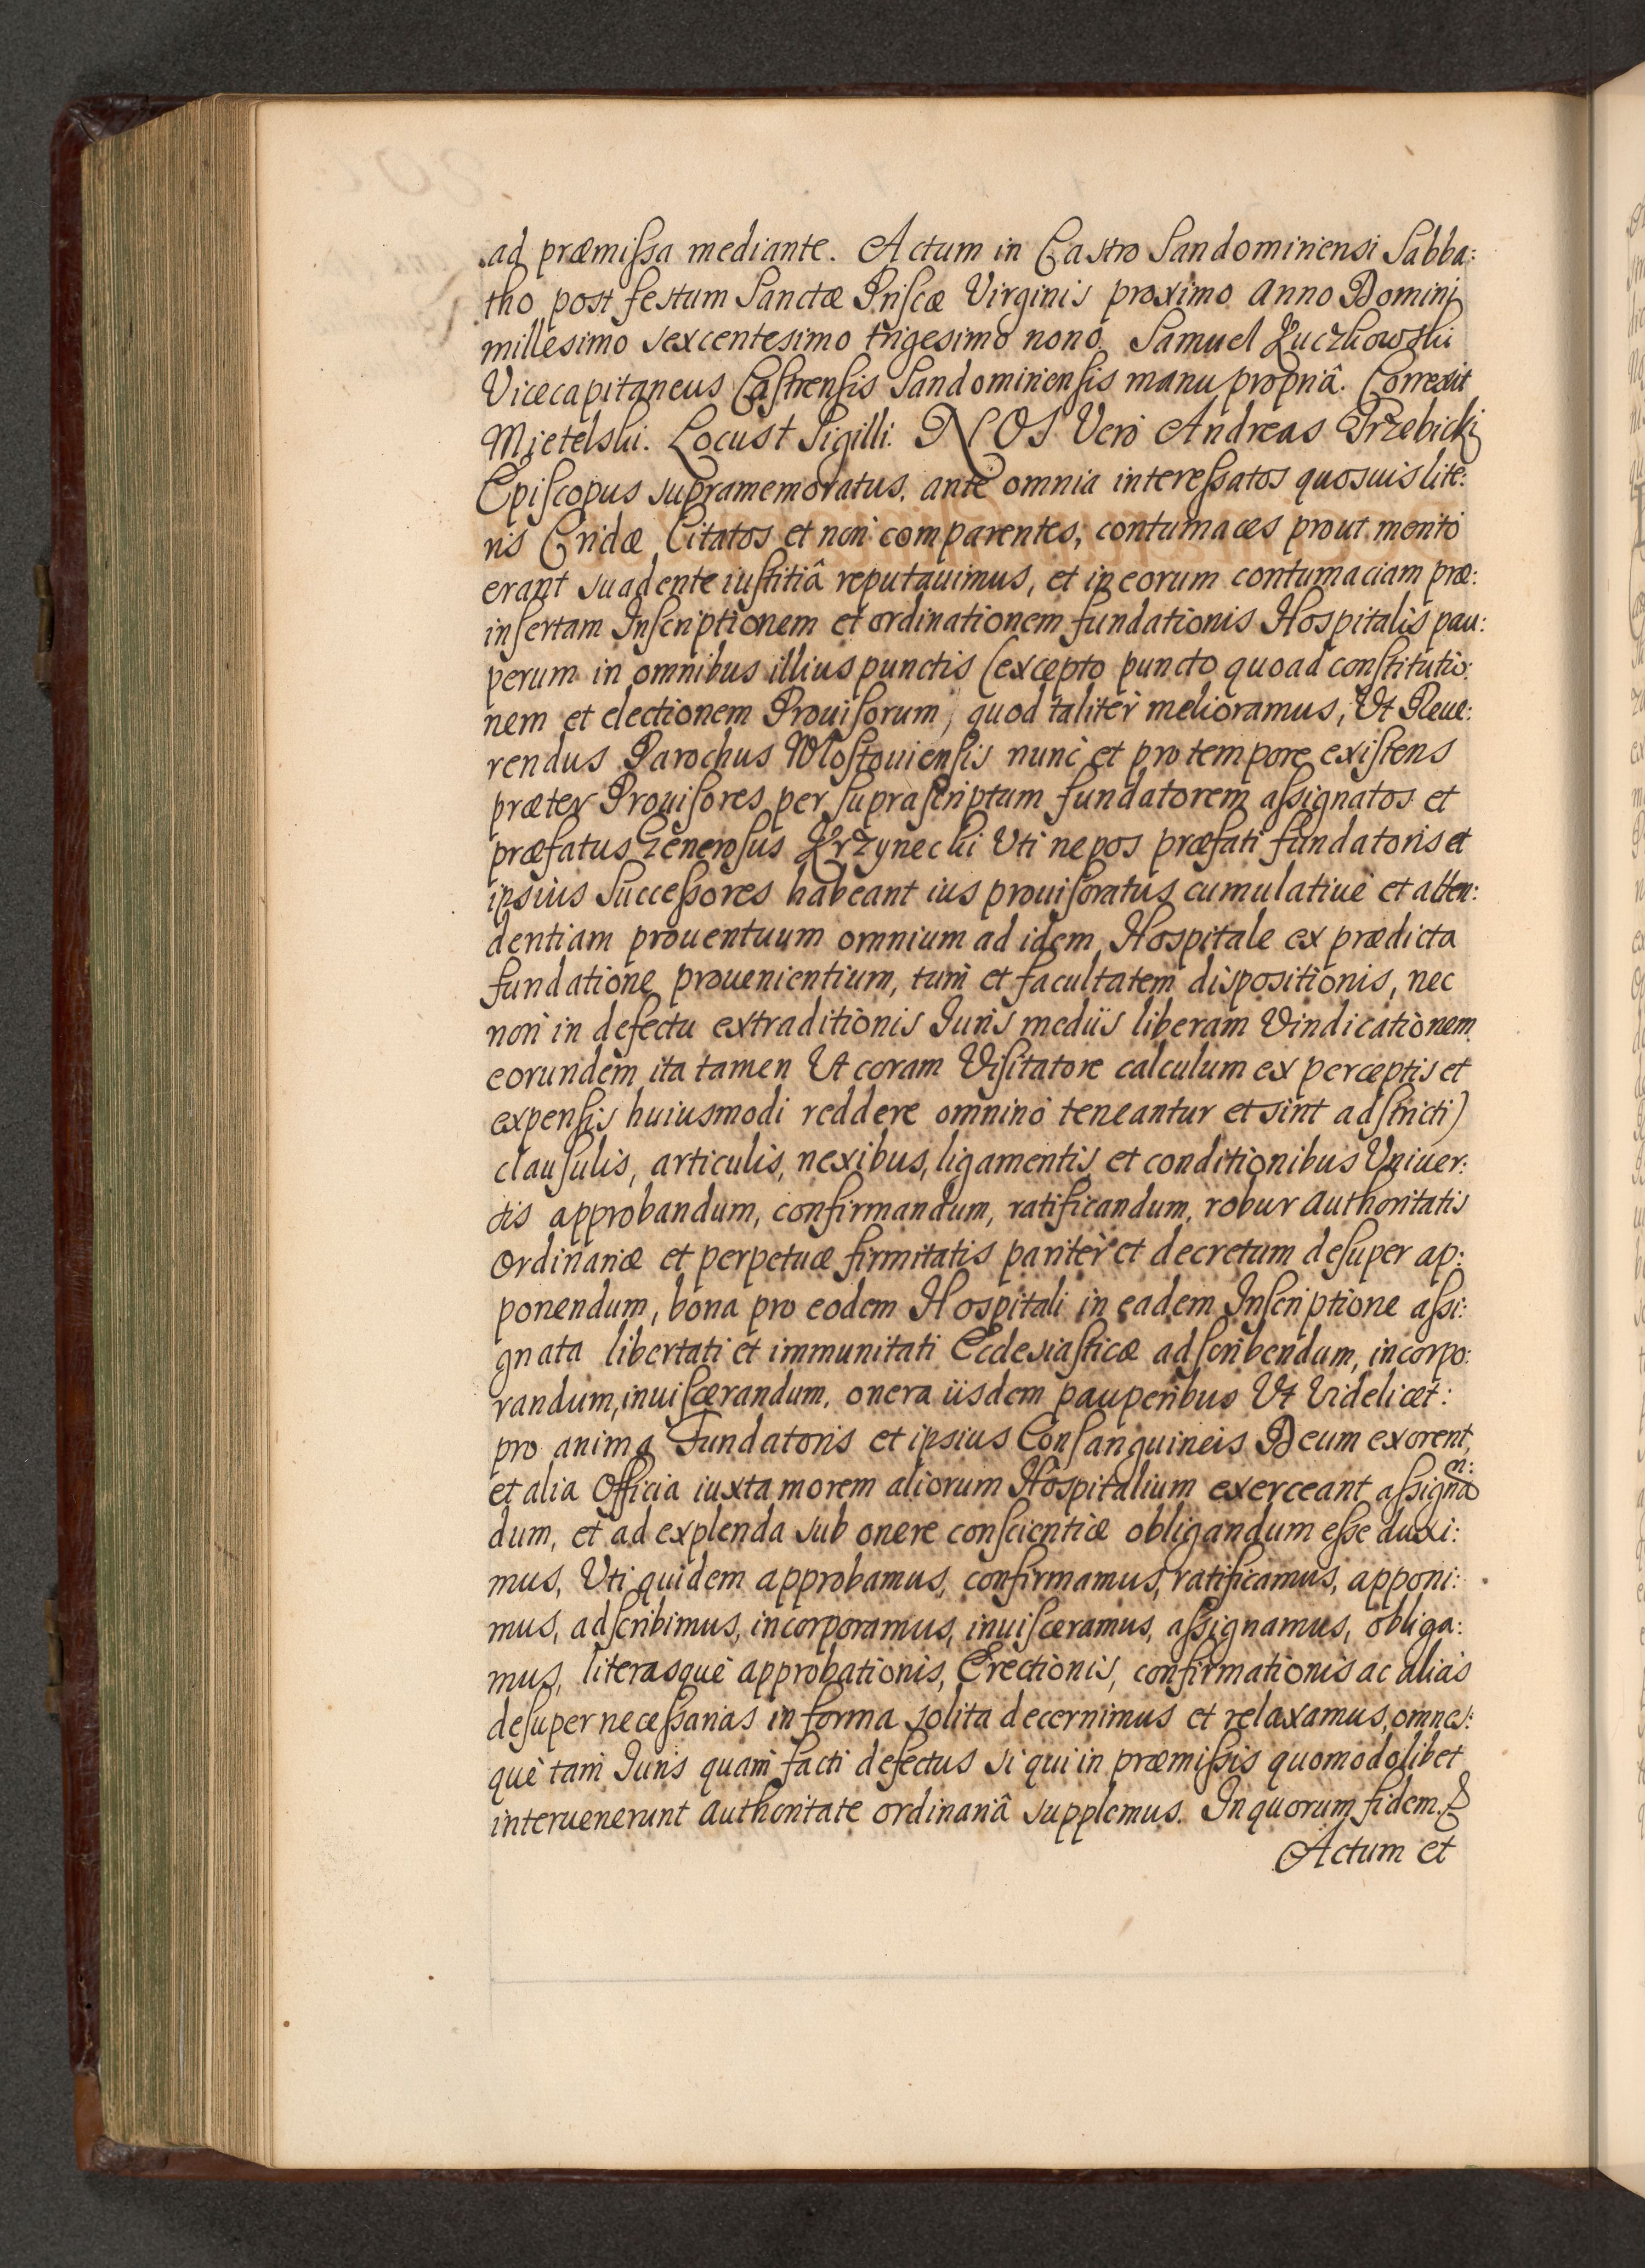 ad præmissa mediante. Actum in Castro Sandomiriensi Sabba:
tho post festum Sanctæ Priscæ Virginis proximo Anno Domini
millesimo sexcentesimo trigesimo nonò. Samuel Kuczkowski
Vicecapitaneus Castrensis Sandomiriensis manu propriâ. Correxit
Mietelski. Locus t Sigilli. NOS Verò Andreas Trzebicki
Episcopus supramemoratus. ante omnia interessatos quosuis lite:
ris Cridæ Citatos et non comparentes, contumaces prout meritò
erant suadente iustitiâ reputauimus, et in eorum contumaciam præ:
insertam Inscriptionem et ordinationem fundationis Hospitalis pau:
perum in omnibus illius punctis (excepto puncto quoad constitutio:
nem et electionem Prouisorum, quod taliter melioramus, Ut Reue:
rendus Parochus Wlostouiensis nunc et pro tempore existens
præter Prouisores per suprascriptum fundatorem assignatos et
præfatus Generosus Krzynecki Uti nepos præfati fundatoris et
ipsius Successores habeant ius prouisoratus cumulatiuè et atten:
dentiam prouentuum omnium ad idem Hospitale ex prædicta
fundatione prouenientium, tum et facultatem dispositionis, nec
non in defectu extraditionis Iuris medijs liberam Vindicationem
eorundem ita tamen Ut coram Visitatore calculum ex perceptis et
expensis huiusmodi reddere omninò teneantur et sint adstricti)
clausulis, articulis, nexibus, ligamentis et conditionibus Vniuer:
sis approbandum, confirmandum, ratificandum, robur Authoritatis
Ordinariæ et perpetuæ firmitatis pariter et decretum desuper ap:
ponendum, bona pro eodem Hospitali in eadem Inscriptione assi:
gnata libertati et immunitati Ecclesiasticæ adscribendum, incorpo:
randum, inuiscerandum, onera iisdem pauperibus Ut Videlicet:
pro anima Fundatoris et ipsius Consanguineis Deum exorent,
et alia Officia iuxta morem aliorum Hospitalium exerceant assignan:
dum, et ad explenda sub onere conscientiæ obligandum esse duxi:
mus, Uti quidem approbamus, confirmamus, ratificamus, apponi:
mus, adscribimus, incorporamus, inuisceramus, assignamus, obliga:
mus, literasque approbationis, Erectionis, confirmationis ac alias
desuper necessarias in forma solita decernimus et relaxamus, omnes:
què tam Iuris quam facti defectus si qui in præmissis quomodolibet
interuenerunt Authoritate ordinariâ supplemus. In quorum fidem. &
Actum et